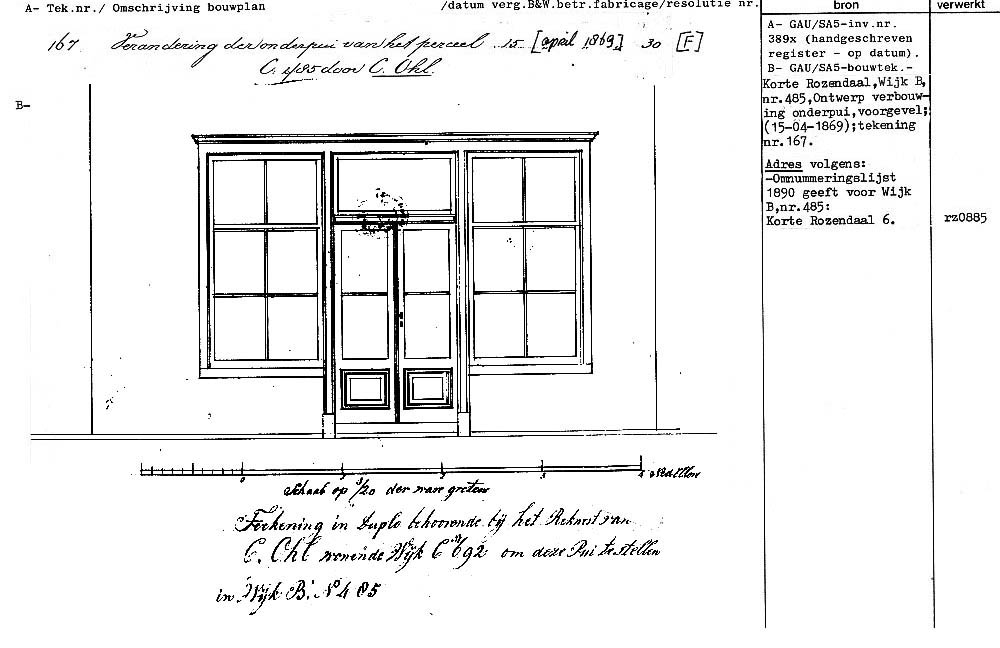 A- Tek.nr./ Omschrijving bouwplan
/datum verg.B&W.betr.fabricage/resolutie nr.
bron
verwerkt
167 Verandering der onderpui van het perceel 15 [april 1869] 30 [F]
C. 485 door C. Ohl.
B-
A- GAU/SA5-inv.nr.
389x (handgeschreven
register - op datum).
B- GAU/SA5-bouwtek.-
Korte Rozendaal,Wijk B,
nr.485,Ontwerp verbouw-
ing onderpui,voorgevel;
(15-04-1869);tekening
nr.167.
Adres volgens:
-Omnummeringslijst
1890 geeft voor Wijk
B,nr.485:
Korte Rozendaal 6.
rz0885
0 1 2 3 4 Nedellen
Schaal op 1/20 der ware grootte
Teekening in Duplo behoorende bij het Rekwest van
C. Ohl wonende Wijk C No 692 om deze Pui te stellen
in Wijk B. No 485